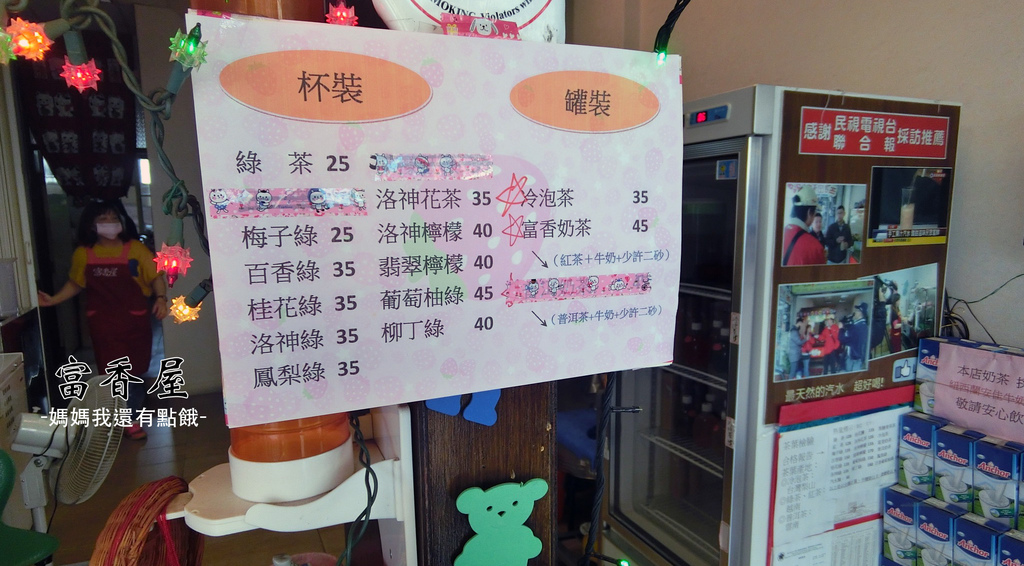 SMOKING Violators wi
杯裝
綠 茶 25
梅子綠 25
百香綠 35
桂花綠 35
洛神綠 35
鳳梨綠 35
洛神花茶 35
洛神檸檬 40
翡翠檸檬 40
葡萄柚綠 45
柳丁綠 40
罐裝
冷泡茶 35
富香奶茶 45
(紅茶+牛奶+少許二砂)
(普洱茶+牛奶+少許二砂)
感謝 民視電視台 聯合報 採訪推薦
最天然的汽水 超好喝!
本店奶茶 採
敬請安心飲
Anchor
Anchor
Anchor
Anchor
Anchor
Anchor
富香屋
-媽媽我還有點餓-